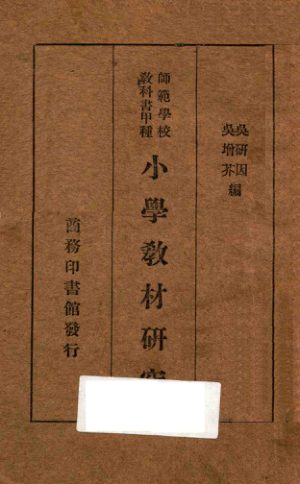 吳研因
吳增芥
編
師範學校
教科書甲種
小學教材研究
商務印書館發行